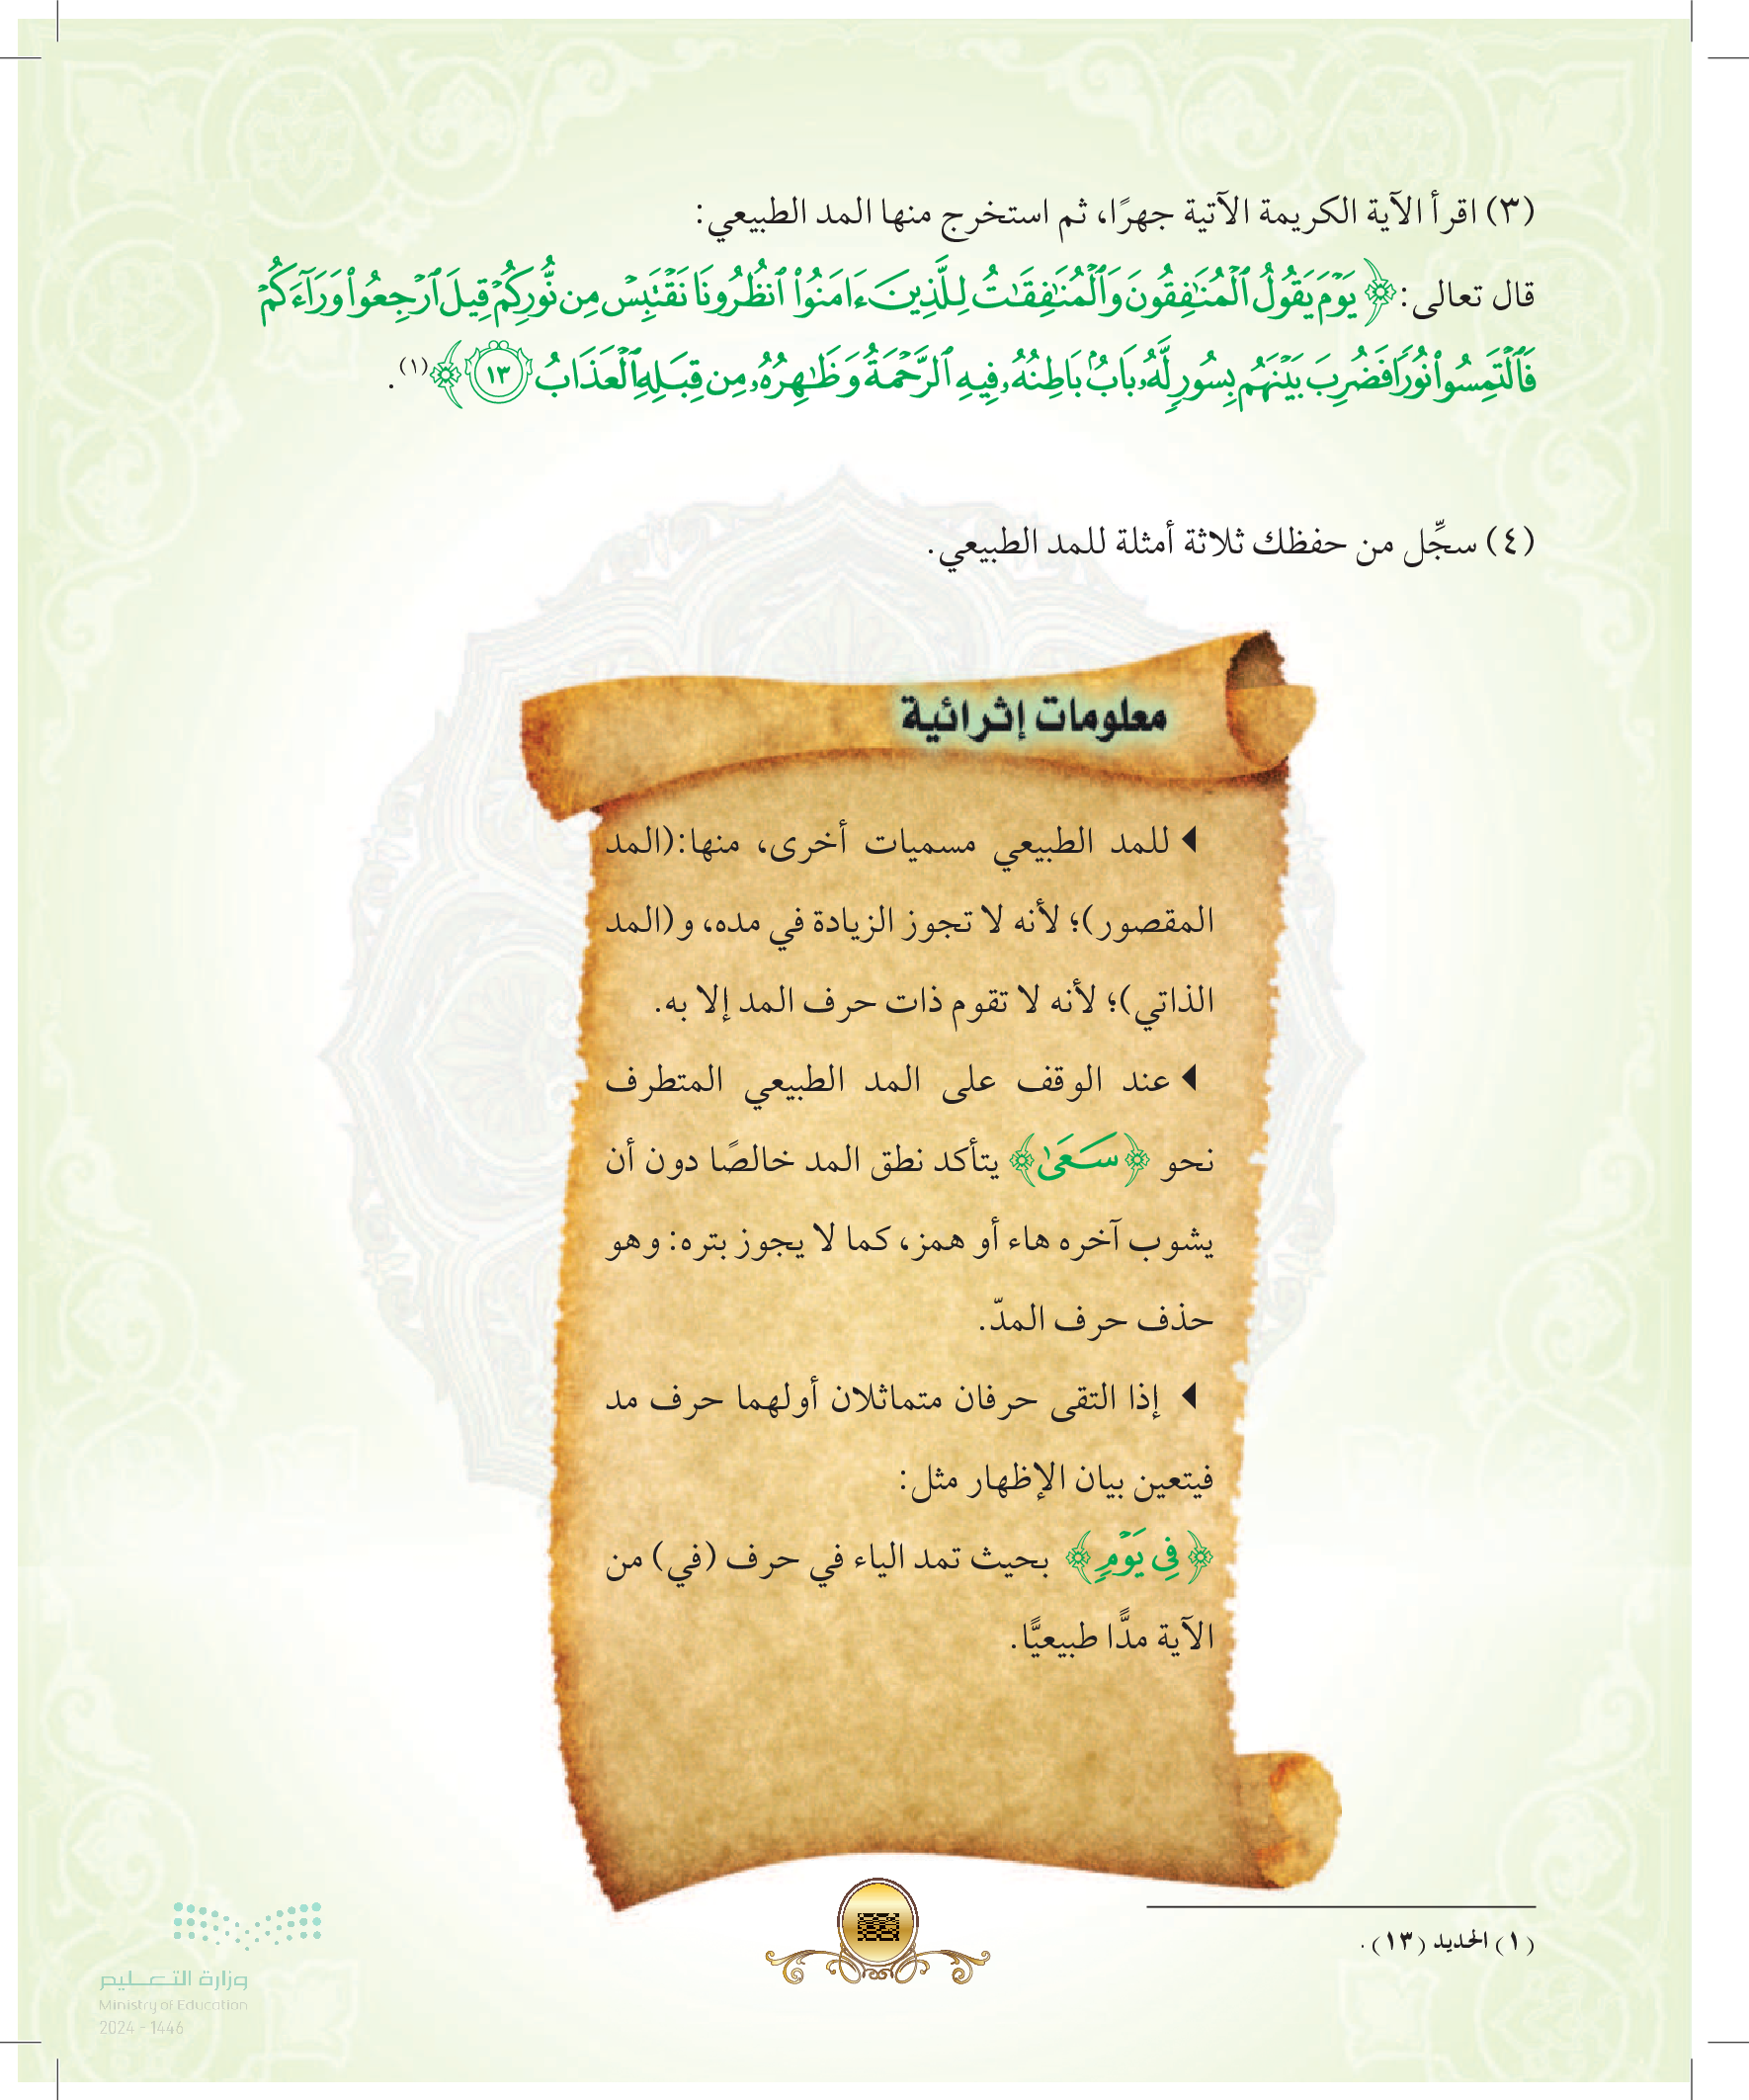 (٣) اقرأ الآية الكريمة الآتية جهرًا، ثم استخرج منها المد الطبيعي:
قال تعالى: ﴿ يَوْمَ يَقُولُ ٱلْمُنَٰفِقُونَ وَٱلْمُنَٰفِقَٰتُ لِلَّذِينَ ءَامَنُوا۟ ٱنظُرُونَا نَقْتَبِسْ مِن نُّورِكُمْ قِيلَ ٱرْجِعُوا۟ وَرَآءَكُمْ
فَٱلْتَمِسُوا۟ نُورًا فَضُرِبَ بَيْنَهُم بِسُورٍ لَّهُۥ بَابٌۢ بَاطِنُهُۥ فِيهِ ٱلرَّحْمَةُ وَظَٰهِرُهُۥ مِن قِبَلِهِ ٱلْعَذَابُ ١٣ ﴾(١).
(٤) سجِّل من حفظك ثلاثة أمثلة للمد الطبيعي.
معلومات إثرائية
للمد الطبيعي مسميات أخرى، منها:(المد
المقصور)؛ لأنه لا تجوز الزيادة في مده، و(المد
الذاتي)؛ لأنه لا تقوم ذات حرف المد إلا به.
عند الوقف على المد الطبيعي المتطرف
نحو ﴿سَعَىٰ﴾ يتأكد نطق المد خالصًا دون أن
يشوب آخره هاء أو همز، كما لا يجوز بتره: وهو
حذف حرف المدّ.
إذا التقى حرفان متماثلان أولهما حرف مد
فيتعين بيان الإظهار مثل:
﴿فِى يَوْمٍ﴾ بحيث تمد الياء في حرف (في) من
الآية مدًّا طبيعيًّا.
(١) الحديد (١٣).
وزارة التعليم
Ministry of Education
2024 - 1446